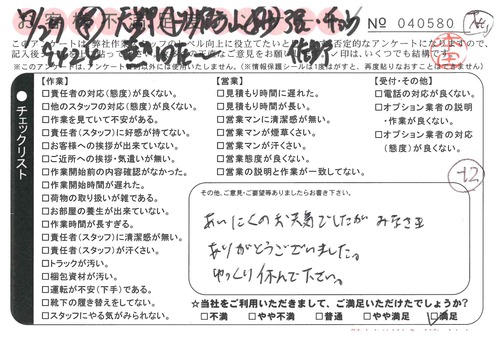 No 040580
このアンケートは、弊社作業
※このアンケートは
【作業】
□責任者の対応(態度)が良くない。
□他のスタッフの対応(態度)が良くない。
□作業を見ていて不安がある。
□責任者(スタッフ)に好感が持てない。
□お客様への挨拶が出来ていない。
□ご近所への挨拶・気遣いが無い。
□作業開始前の内容確認がなかった。
□作業開始時間が遅れた。
□荷物の取り扱いが雑である。
□お部屋の養生が出来ていない。
□作業時間が長すぎる。
□責任者(スタッフ)に清潔感が無い。
□責任者(スタッフ)が汗くさい。
□トラックが汚い。
□梱包資材が汚い。
□運転が不安(下手)である。
□靴下の履き替えをしてない。
□スタッフにやる気がみられない。
チェックリスト
【営業】
□見積もり時間に遅れた。
□見積もり時間が長い。
□営業マンに清潔感が無い。
□営業マンが煙草くさい。
□営業マンが汗くさい。
□営業態度が良くない。
□営業の説明と作業が一致してない。
【受付・その他】
□電話の対応が良くない。
□オプション業者の説明
・作業が良くない。
□オプション業者の対応
(態度)が良くない。
+2
その他、ご意見・ご要望等ありましたらお書き下さい。
あいにくのお天気でしたが みなさま
ありがとうございました。
ゆっくり休んで下さい。
☆当社をご利用いただきまして、ご満足いただけたでしょうか?
□不満 □やや不満 □普通 □やや満足 □満足